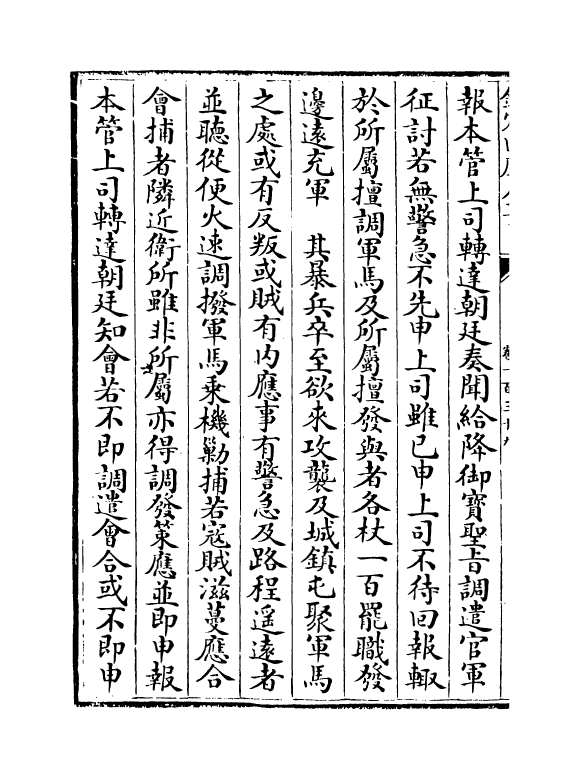 報本管上司轉達朝廷奏聞給降御寳聖旨調遣官軍
征討若無警急不先申上司雖已申上司不待回報輙
於所屬擅調軍馬及所屬擅發與者各杖一百罷職發
邊逺充軍　其暴兵卒至欲來攻襲及城鎮屯聚軍馬
之處或有反叛或賊有内應事有警急及路程遥逺者
並聽從便火速調撥軍馬乗機勦捕若寇賊滋蔓應合
會捕者隣近衛所雖非所屬亦得調發策應並即申報
本管上司轉達朝廷知會若不即調遣會合或不即申